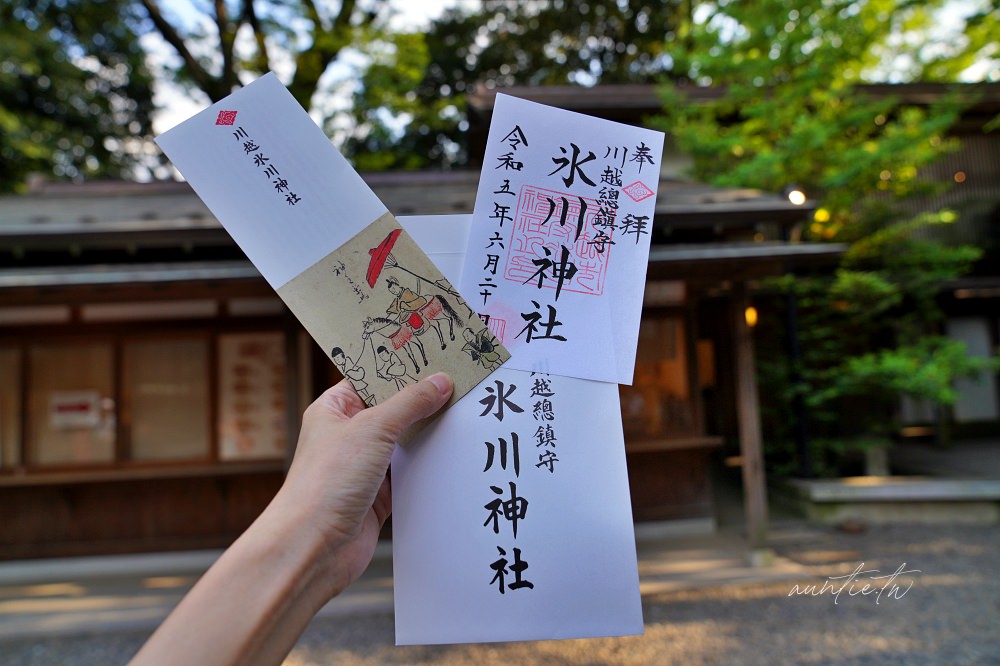 川越氷川神社
奉拝
川越總鎮守
氷川神社
令和五年六月二十
川越總鎮守
氷川神社
auntie.tw